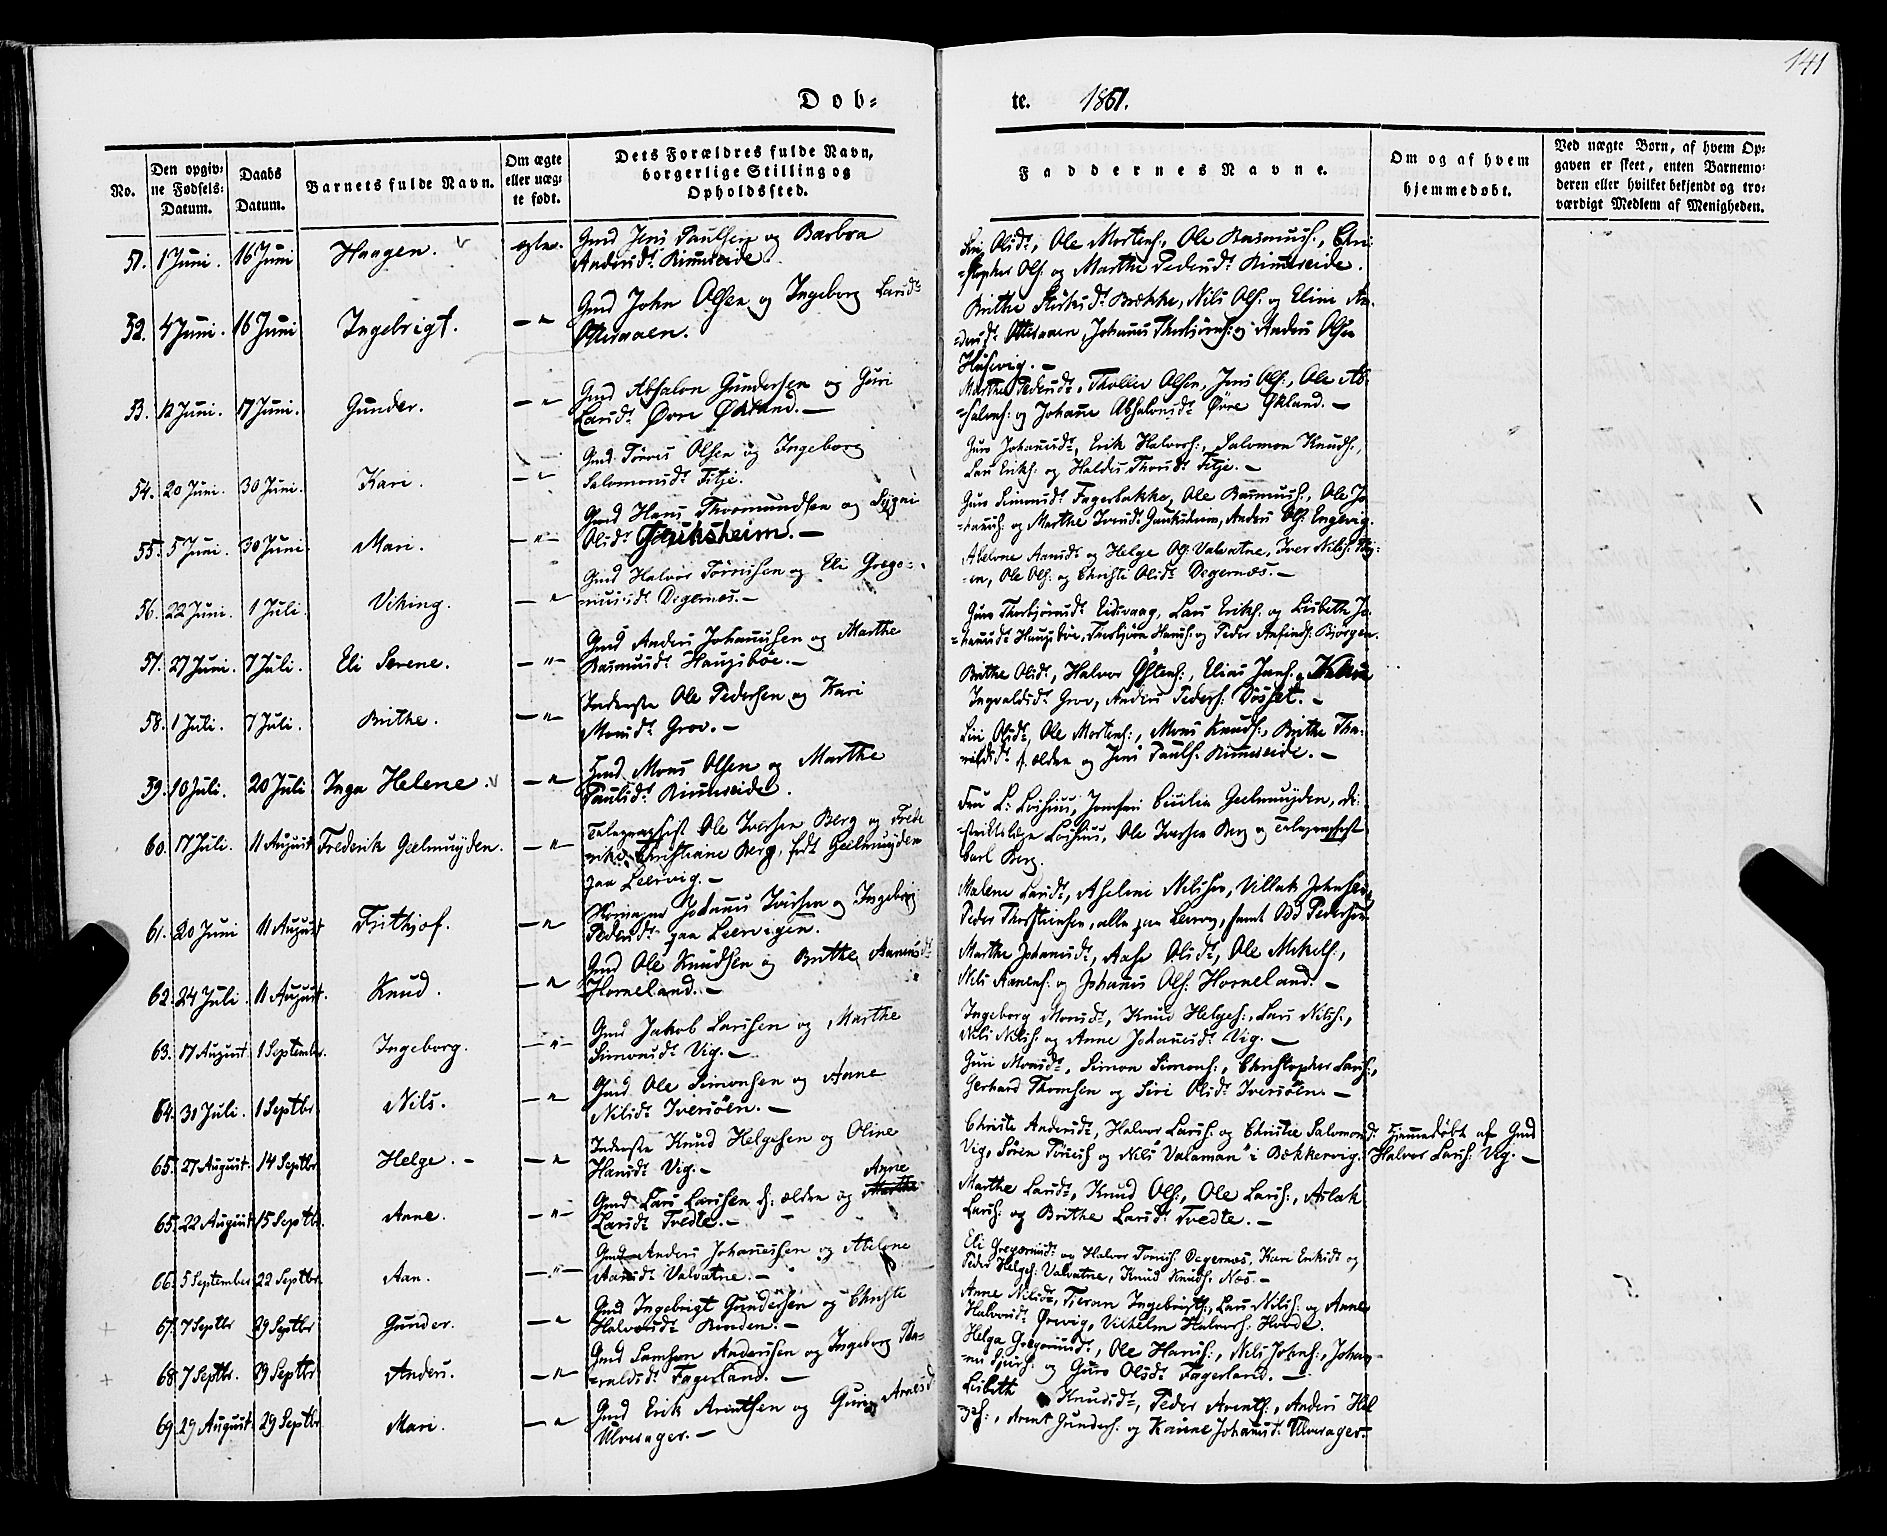 141
Døb=
te. 1861.
No.
Den opgiv=
ne Fødsels=
Datum.
Daabs
Datum.
Barnets fulde Navn.
Om ægte
eller uæg=
te født.
Dets Forældres fulde Navn,
borgerlige Stilling og
Opholdssted.
Faddernes Navne.
Om og af hvem
hjemmedøbt.
Ved uægte Børn, af hvem Op=
gaven er skeet, enten Barnemo=
deren eller hvilket bekjendt og tro=
værdigt Medlem af Menigheden.
51. 1 Juni. 16 Juni Haagen. ægte. Gmd Jens Paulsen og Barbra
Andersdt Rimereide.
Siri Olsdt, Ole Mortens:, Ole Rasmus:, Chri=
=stopher Ols: og Marthe Pedersdt Rimereide.
52. 4 Juni. 16 Juni Ingebrigt. —"— Gmd John Olsen og Ingeborg Larsdt
Ottesaaen.
Brithe Dt Brække, Nils Ols: og Eline An=
=dersdt Ottesaaen, Johannes Thorbjørns: og Anders Olsen
Husevig. —
53. 12 Juni. 17 Juni. Gunder. —"— Gmd Absalon Gundersen og Guri
Larsdt Øvre Økland. —
Marthe Pedersdt, Thollev Olsen, Jens Ols:, Ole Ab=
=salons: og Johanne Absalonsdt Øvre Økland. —
54. 20 Juni. 30 Juni. Kari. —"— Gmd Tørres Olsen og Ingeborg
Salomonsdt Fitje.
Guro Johannesdt, Erik Halvors:, Salomon Knuds:,
Lars Eriks: og Haldis Thorsdt Fitje. —
55. 5 Juni. 30 Juni. Mari. —"— Gmd Hans Thormundsen og Signi
Olsdt Gauksheim. —
Guro Simonsdt Fagerbakke, Ole Rasmus:, Ole Jo=
=hannes: og Marthe Iversdt Gauksheim, Anders Ols: Engevig.
56. 22 Juni. 1 Juli. Viking. —"— Gmd Halvor Tørrisen og Eli Grego=
=riusdt Degernes. —
Abelone Aanusdt og Helge Ols: Valvatne, Iver Nils:
=en, Ole Ols: og Christi Olsdt Degernæs. —
57. 27 Juni. 7 Juli. Eli Serene. —"— Gmd Anders Johannessen og Marthe
Rasmusdt Haugsbøe. —
Guro Thorbjørnsdt Eidsvaag, Lars Eriks: og Lisbeth Jo=
=hannesdt Haugsbøe, Thorbjørn Hans: og Peder Anfinds: Bjørgen.
58. 1 Juli. 7 Juli. Brithe. —"— Inderste Ole Pedersen og Kari
Monsdt Grov. —
Brithe Olsdt, Halvor Østens:, Elias Jens:
Ingvaldsdt Grov, Anders Peders: Døsset. —
59. 10 Juli. 20 Juli Inga Helene. —"— Gmd Mons Olsen og Marthe
Paulsdt Rimereide.
Siri Olsdt, Ole Mortens:, Mons Knuds:, Brithe Tho=
=rildsdt d. ældre og Jens Pauls: Rimereide. —
60. 17 Juli. 11 August Frederik Geelmuyden. —"— Telegraphist Ole Iversen Berg og Frede
rikke Christiane Berg, født Geelmuyden
paa Leervig. —
Fru L: Leshius, Jomfru Cecilia Geelmuyden, Di=
=striktslæge Leshius, Ole Iversen Berg og Telegraphist
Carl Berg.
61. 20 Juni 11 August Frithjof. —"— Johannes Iversen og Ingeborg
Pedersdt paa Leervigen.
Malene Larsdt, Aselene Nilsen, Villak Johnsen,
Peder Thorsteinsen, alle paa Lervig, samt Odd Pedersen
62. 24 Juli. 11 August. Knud. —"— Gmd Ole Knudsen og Brithe Aanensdt
Horneland. —
Marthe Johannesdt, Aase Olsdt, Ole Mikels:,
Nils Aanens: og Johannes Ols: Horneland. —
63. 17 August 1 September. Ingeborg. —"— Gmd Jakob Larssen og Marthe
Simonsdt Vig. —
Ingeborg Monsdt, Knud Helges:, Lars Nils:,
Nils Nils: og Anne Johannesdt Vig. —
64. 31 Juli. 1 Septbr. Nils. —"— Gmd Ole Simonsen og Anne
Nilsdt Iversøen. —
Guri Monsdt, Simon Simons:, Christopher Lars:,
Gerhard Thomsen og Siri Olsdt Iversøen. —
65. 27 August. 14 Septbr Helge. — —"— Inderste Knud Helgesen og Oline
Hansdt Vig. —
Christi Andersdt, Halvor Lars: og Christie Salomonsdt
Vig, Søren Tørris: og Nils "Valaman" i Bækkervig.
Hjemmedøbt af Gmd
Halvor Lars: Vig. —
65. 22 August 15 Septbr. Anne. —"— Gmd Lars Larsen d: ældre og Marthe Anne
Larsdt Tvedte. —
Marthe Larsdt, Knud Ols:, Ole Lars:, Aslak
Lars: og Brithe Larsdt Tvedte. —
66. 5 September 22 Septbr. Aan. —"— Gmd Anders Johannessen og Abelone
Aanusdt Valvatne. —
Eli Gregoriusdt og Halvor Tørris: Degernæs, Kari Eriksdt og
Peder Helges: Valvatne, Knud Knuds: Næs. —
67. 7 Septbr 29 Septbr Gunder. —"— Gmd Ingebrigt Gundersen og Christi
Halvorsdt Rinden. —
Anne Nilsdt, Tieran Ingebrigts:, Lars Nils: og Anne
Halvorsdt Ørevig, Vilhelm Halvors: Hovde.
68. 7 Septbr. 29 Septbr Anders. —"— Gmd Samson Andersen og Ingeborg Tha=
=raldsdt Fagerland. —
Helga Gregoriusdt, Ole Hans:, Nils Johns:, Johan=
=nes og Guro Olsdt Fagerland. —
69. 29 August. 29 Septbr Mari. —"— Gmd Erik Arentsen og Guri Arnesdt
Ulversager. —
Lisbeth Knudsdt, Peder Arents:, Anders Hel
ges:, Arent Gunders: og Karine Johannesdt Ulversager.